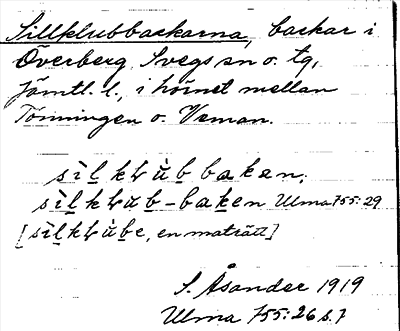 Sillklubbackarna, backar i
Överberg, Svegs sn o. tg,
Jämtl. l., i hörnet mellan
Tönningen o. Veman.
sìlkḷùbbaken,
sìlkḷùb-baken Ulma 755:29
[sìlkḷùbe, en maträtt]
S. Åsander 1919
Ulma 755:26 s. 7